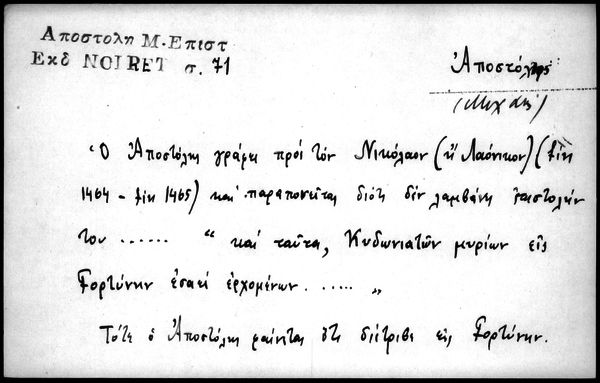 Αποστολη Μ. Επιστ
Εκδ NOIRET σ. 71
Ἀποστόλης
(Μιχαήλ)
Ὁ Ἀποστόλης γράφει πρὸς τὸν Νικόλαον (ἢ Λαόνικον) (fin
1464 - fin 1465) καὶ παραπονεῖται διότι δὲν λαμβάνει ἐπιστολήν
του ...... " καὶ ταῦτα, Κυδωνιατῶν μυρίων εἰς
Γορτύνην ἐσαεὶ ἐρχομένων. ..... "
Τότε ὁ Ἀποστόλης φαίνεται ὅτι διέτριβε εἰς Γορτύνην.